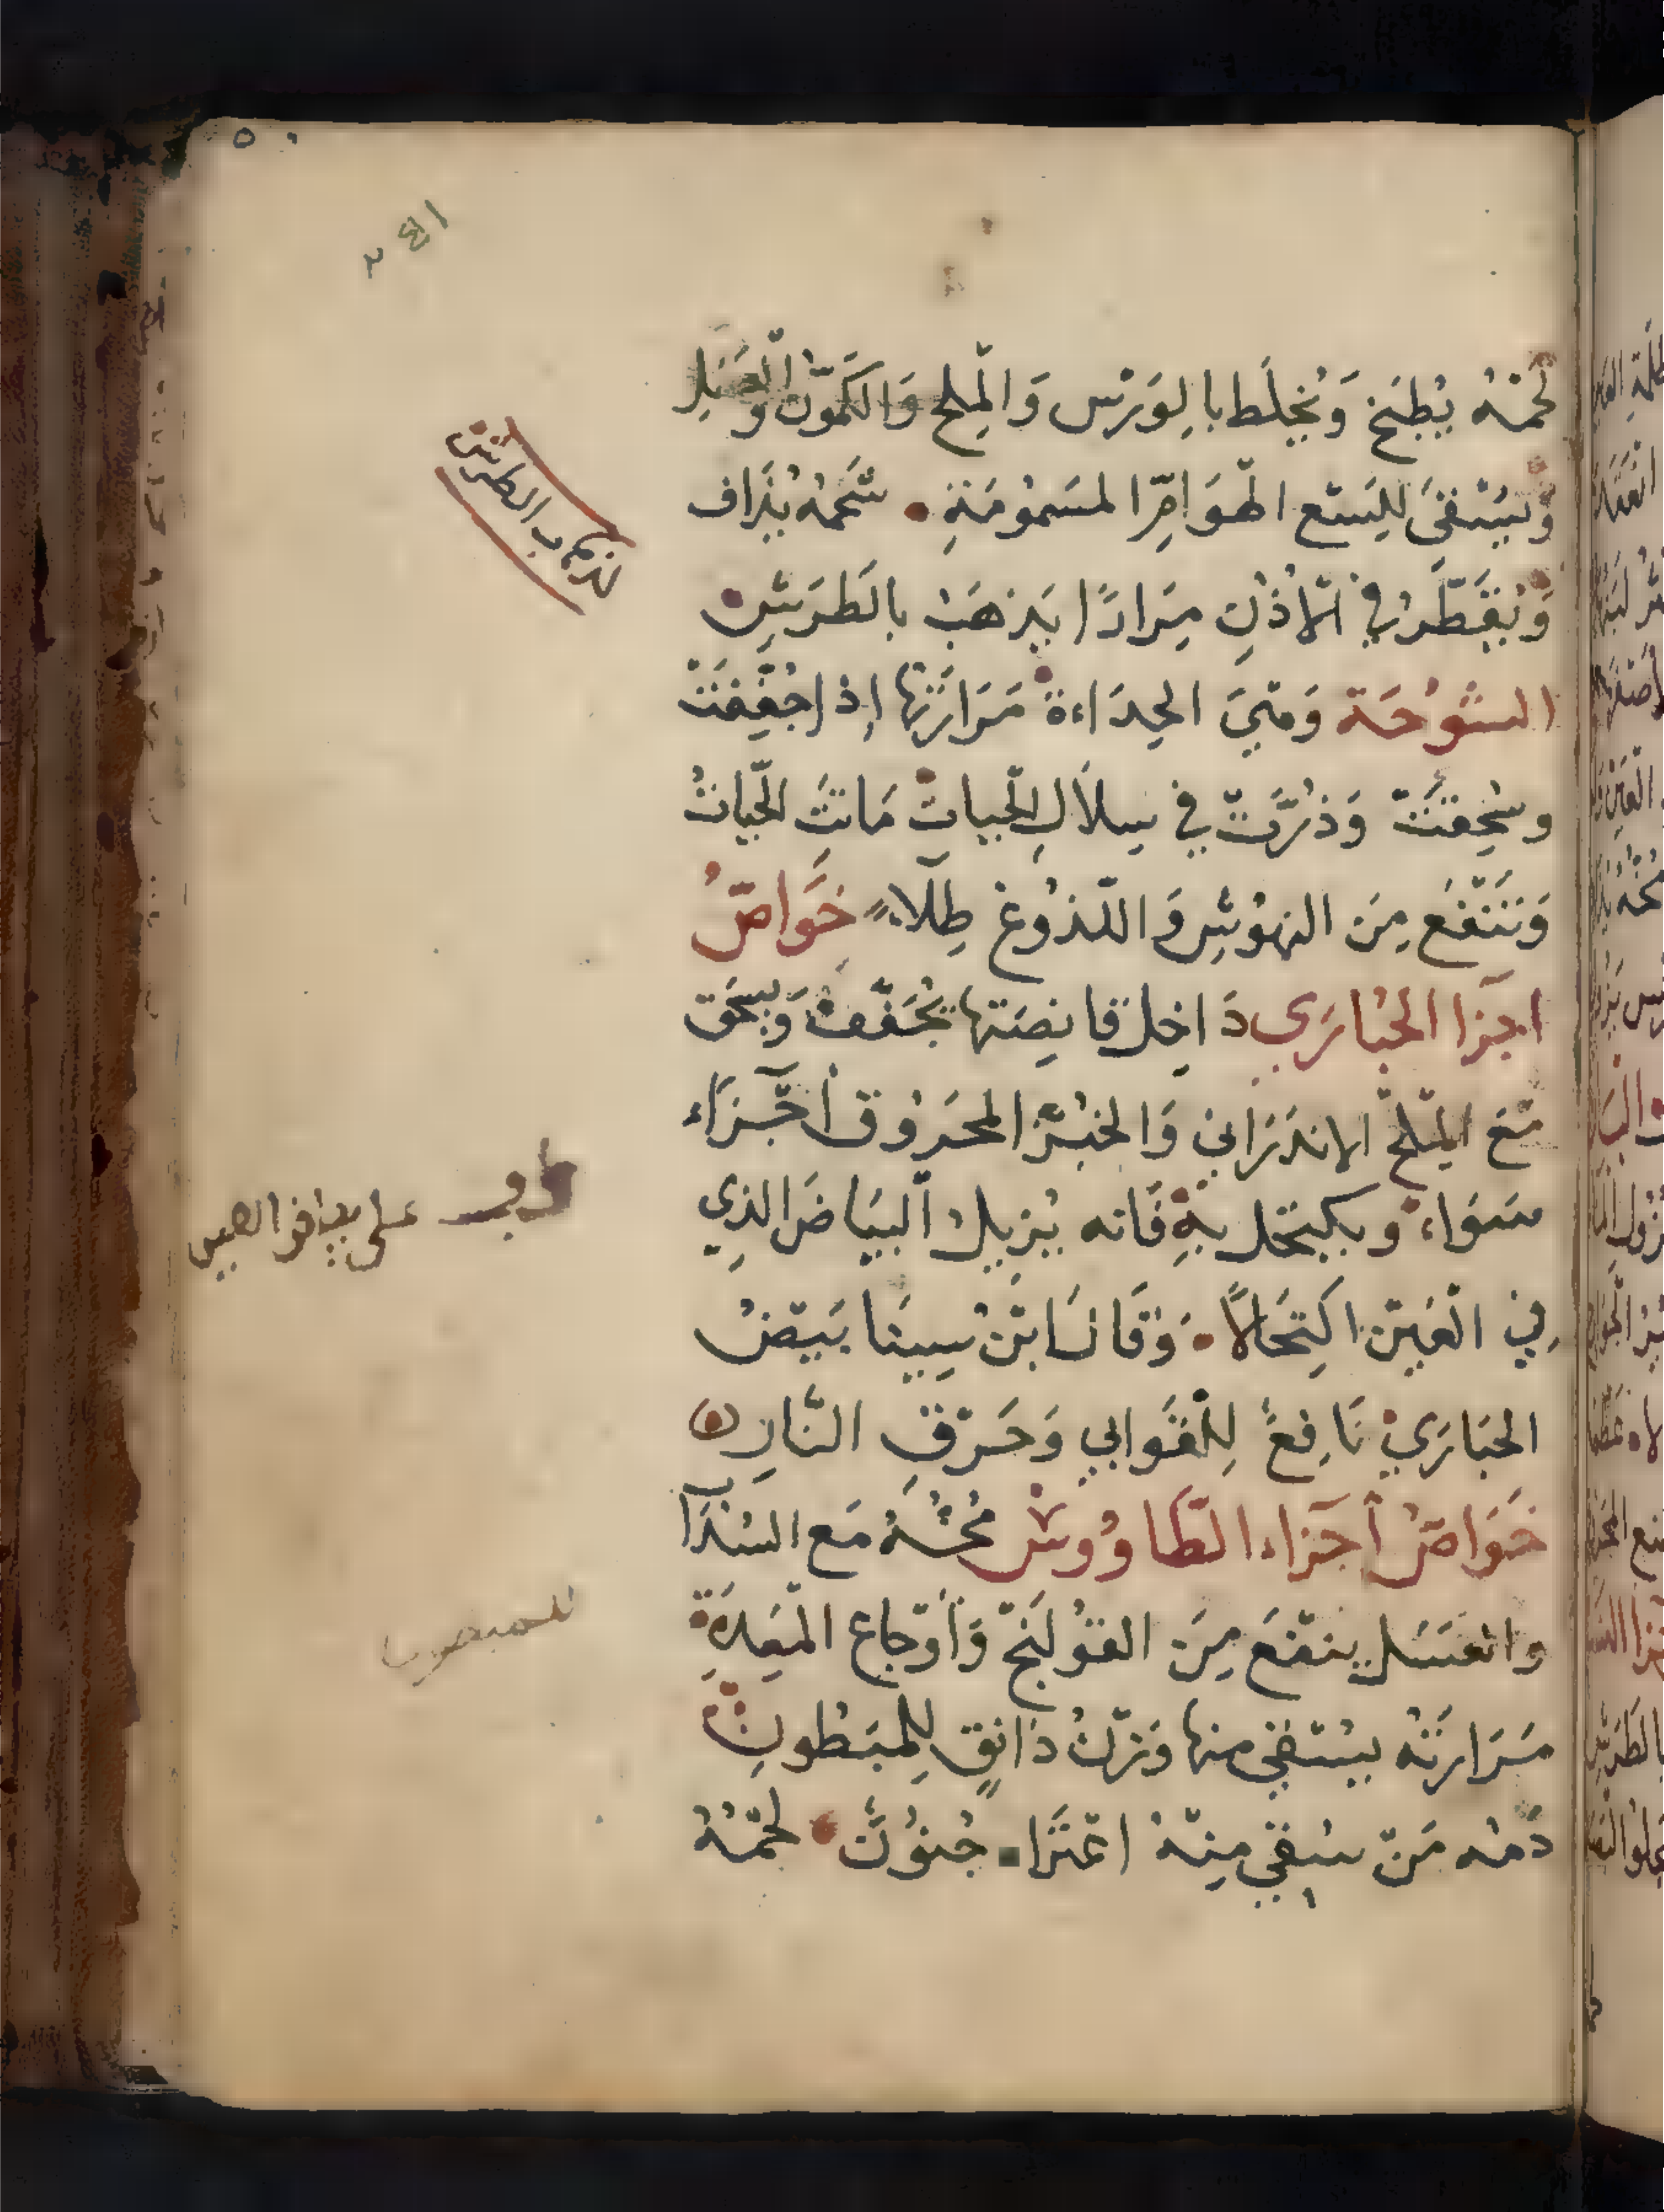 ٥٠
لحمه يُطبَخ وَيُخلَط بالوَرْس وَالمِلح وَالكَمّون وَالعسَل
وَيُسْتَقى لِلَسْع الهَوَامِّ المَسمُومَةِ • شحمُه يُذَاف
وَيُقَطَّرُ في الأُذُنِ مِرَارًا يَذهَبْ بالطَرَشِ •
الشُوْحَة وَهِيَ الحِدَاءة مَرَارَتها إذا جُفِّفَتْ
وسُحِقَتْ وَذُرَّتْ في سِلاَلِ الحَيات مَاتَتَ الحَياتُ
وَتَنْفَعُ مِنَ النهُوشِ وَاللّذُوغ طِلَاءً خَوَاصُّ
اجزا الحُبارَي دَاخِل قانِصَتها يُجَفَّفُ وَيسحَق
مَعَ المِلحّ الاندَرَاني وَالخبْز المحرُوق أَجْزاء
سَوَاء وَيكتحَل بِهِ فَانه يُزيلُ البَيَاضَ الذِي
في العَيْن اكتِحَالاً • وَقَالَ ابْنُ سِينَا بَيْضُ
الحبَارَيْ نَافِعً لِلْقَوابي وَحَرْقِ النَّارِ
خَوَاصُّ أجزاء الطَّاوُوسْ مُخُّهُ مَع السُذَا
والعَسَل ينفَعَ مِنَ القُولَنْج وَأَوْجاع المَعِدَةِ
مَرَارَتُه يُسْتقي منها وَزْنُ دَانقٍ لِلمَبْطُونِ
دَمُه مَنْ سُقيَ مِنْهُ اعْتَرَاه جُنُونَ • لحْمُهُ
لذهاب الطرش
على بياض العين
للمبطون